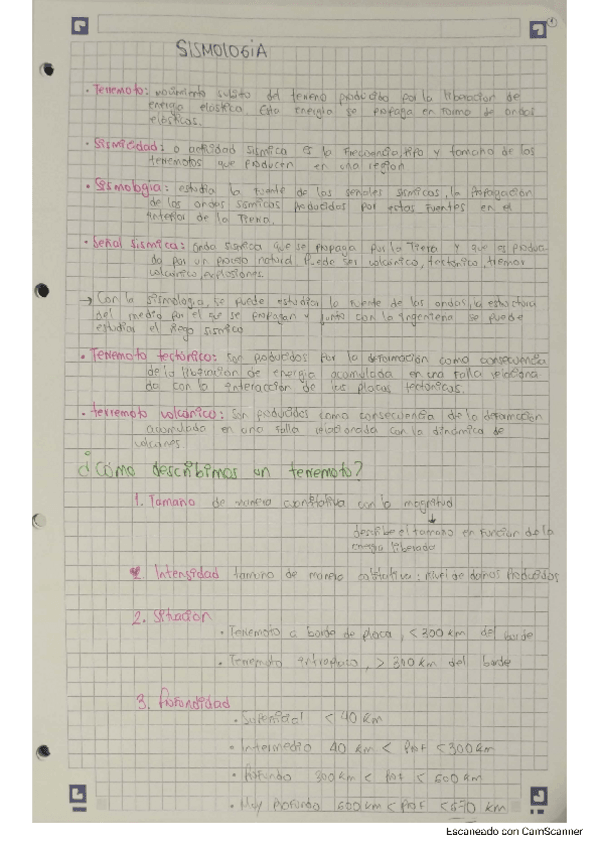 SISMOLOGIA
· Terremoto: movimiento subito del terreno producido por la liberacion de
energia elastica. Esta energia se propaga en forma de ondas
elasticas.
· Sismicidad: o actividad sismica es la frecuencia, tipo y tamaño de los
terremotos que producen en una region
· Sismologia: estudia la fuente de las señales sismicas, la propagacion
de las ondas sismicas producidos por estas fuentes en el
interior de la Tierra.
· Señal sismica: onda sismica que se propaga por la Tierra y que es produci
da por un proceso natural. Puede ser volcanico, tectonico, tremor
volcanico, explosiones.
→ Con la sismologia, se puede estudiar la fuente de las ondas, la estructura
del medio por el que se propagan y junto con la ingenieria se puede
estudiar el riego sismico
· Terremoto tectónico: son producidos por la deformación como consecuencia
de la liberacion de energia acumulada en una falla relaciona
da con la interaccion de las placas tectonicas.
· terremoto volcanico: son producidos como consecuencia de la deformacion
acumulada en una falla relacionada con la dinamica de
volcanes.
¿Cómo describimos un terremoto?
1. Tamaño de manera cuantitativa con la magnitud
↓
describe el tamaño en funcion de la
energia liberada
Intensidad tamano de manera cualitativa: nivel de daños producidos
2. Situacion
· Terremoto a borde de placa, < 300 km del borde
· Terremoto intraplaca, > 300 km del borde
3. Profundidad
· Superficial < 40 km
· Intermedio 40 km < prof < 300 km
· Profundo 300 km < prof < 600 km
· Muy profundo 600 km < prof < 670 km
Escaneado con CamScanner